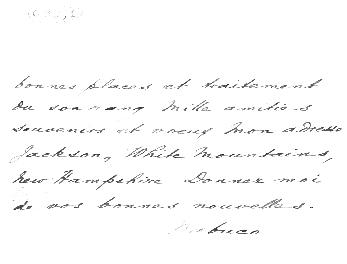 bonnes places et traitement
du son rang Mille amitiés
souvenirs et voeux Mon adresse
Jackson, White Mountains,
New Hampshire Donnez moi
de vos bonnes nouvelles.
Nabuco